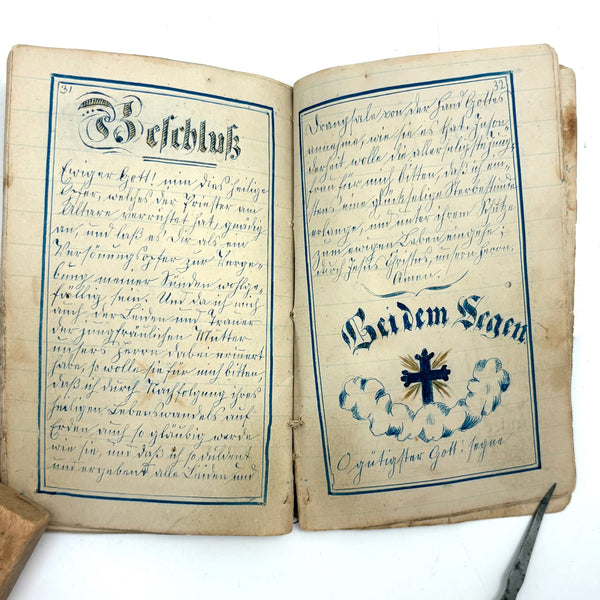 31
Beschluß
Ewiger Gott! nim dies heilige
Opfer, welches der Priester am
Altare verrichtet hat, gnädig
an, und laß es Dir als ein
Versönungsopfer zur Verge-
bung meiner Sünden wohlge-
fällig sein. Und da ich mich
auch der Leiden und Trauer
der jungfräulichen Mutter
unsers Herrn dabei erinnert
habe, so wolle sie für mich bitten,
daß ich durch Nachfolgung ihres
heiligen Lebenswandels auf
Erden auch so gläubig werde
wie sie, und daß ich so duldent
und ergebend alle Leiden und
32
Drangsale von der Hand Gottes
annehme, wie sie es that. Inson-
derheit wolle die allerseligste Jung-
frau für mich bitten, daß ich ein-
stens eine glückselige Sterbestunde
erlange, und unter ihrem Schutze
zum ewigen Leben eingehe;
durch Jesus Christus, unsern Herrn.
Amen.
Bei dem Segen
O gütigster Gott! segne